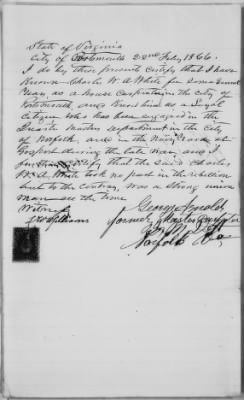 State of Virginia
City of Portsmouth 22nd Feby 1866.
I do by these presents certify that I have
Known Charles W. A White for some
years as a House Carpenter in the City of
Portsmouth, and Know him as a Loyal
Citizen who has been engaged in the
Quarter Masters department in the City
of Norfolk, and in the Navy Yard at
Gosport during the late War, and I
further certify that the said Charles
W. A. White took no part in the rebellion
but to the contrary, was a strong union
man all the time
Witness
George Arnold
former Master
Norfolk Va